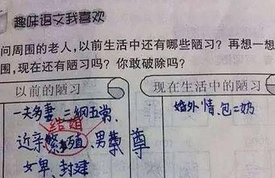 趣味语文我喜欢
问周围的老人，以前生活中还有哪些陋习？再想一想
围，现在还有陋习吗？你敢破除吗？
以前的陋习
现在生活中的陋习
一夫多妻、三纲五常、
结婚
近亲繁殖、男尊
女卑、封建
尊
婚外情、包二奶